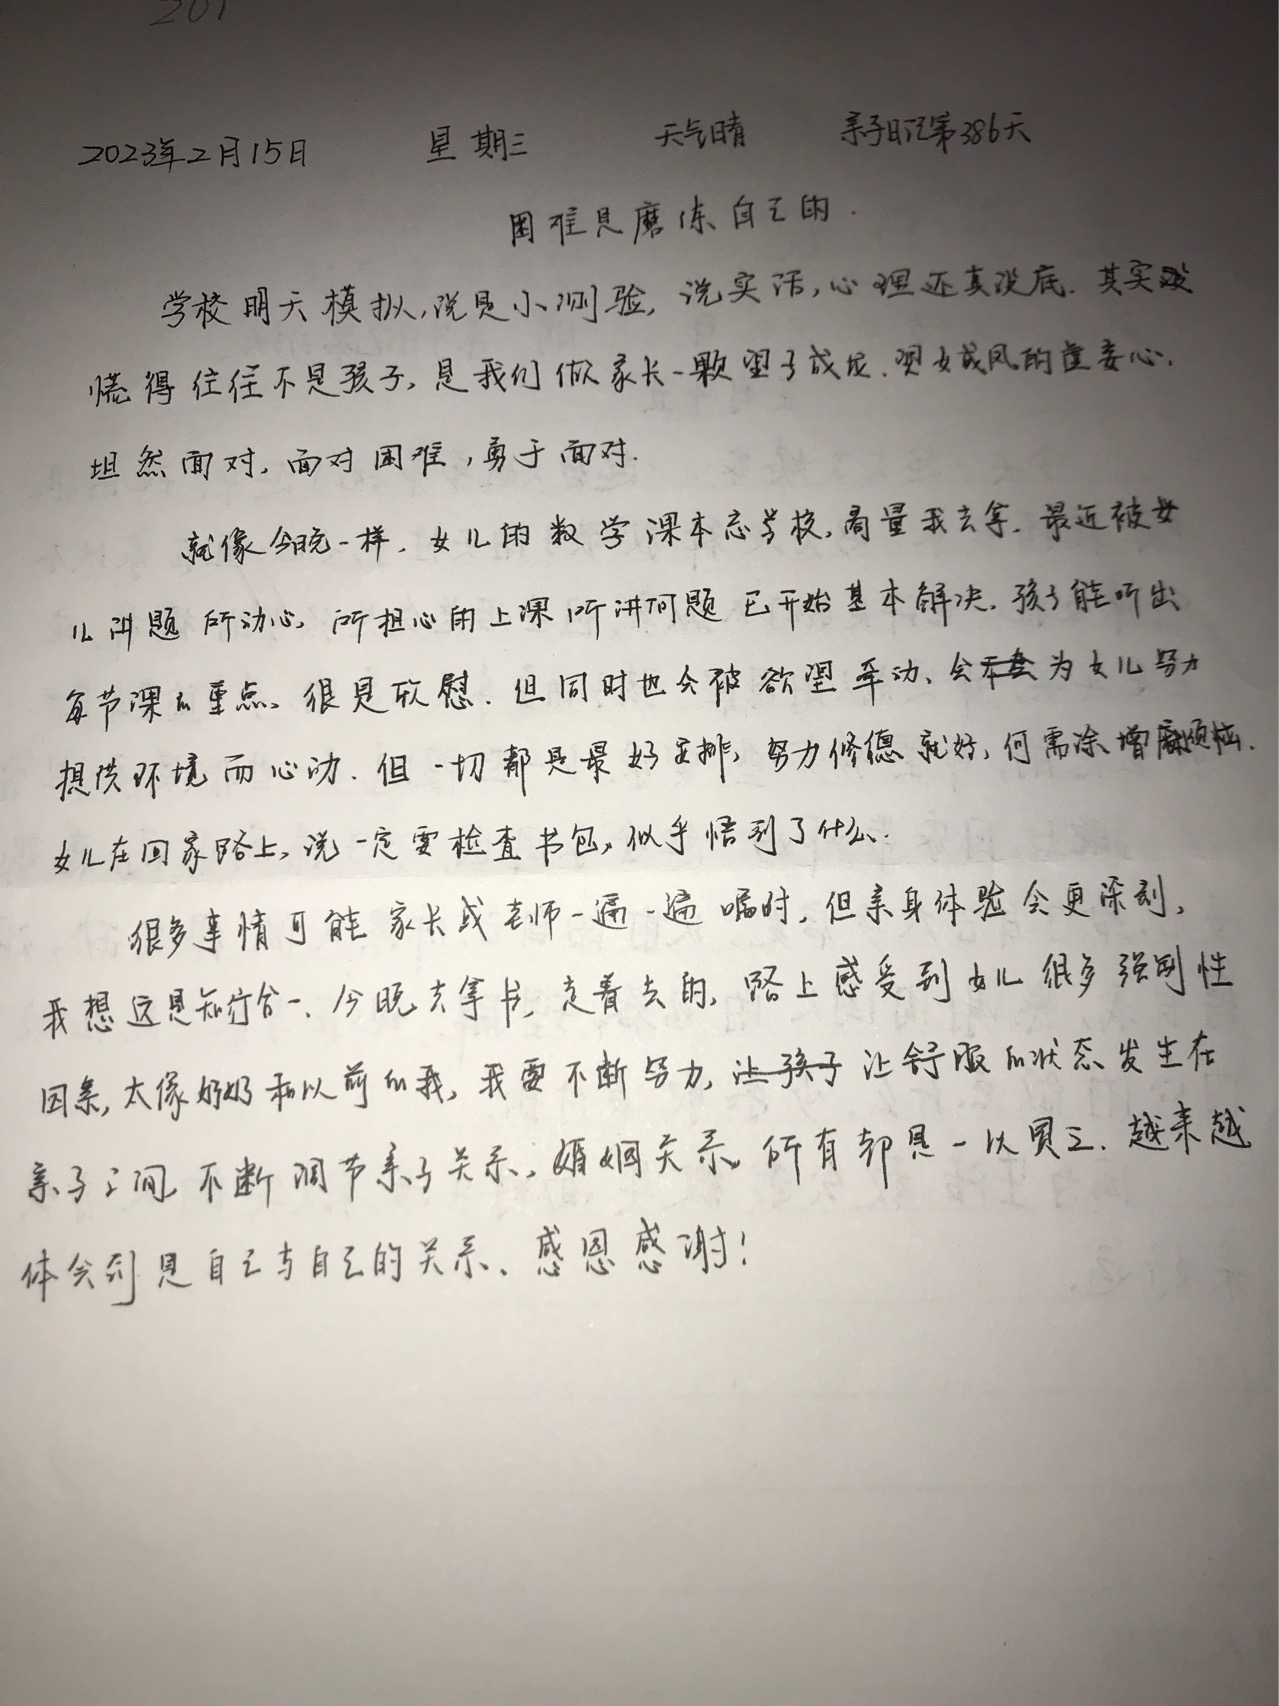 201
2023年2月15日 星期三 天气晴 亲子日记第386天
困难是磨练自己的.
学校明天模拟,说是小测验,说实话,心理还真没底.其实
慌得往往不是孩子,是我们做家长一颗望子成龙.望女成凤的虚妄心.
坦然面对,面对困难,勇于面对.
就像今晚一样,女儿的数学课本忘学校,商量我去拿.最近被女
儿讲题所动心,所担心的上课听讲问题已开始基本解决.孩子能听出
每节课的重点、很是欣慰.但同时也会被欲望牵动、会为女儿努力
提供环境而心动.但一切都是最好安排,努力修德就好,何需添增烦恼.
女儿在回家路上,说一定要检查书包,似乎悟到了什么.
很多事情可能家长或老师一遍一遍嘱咐,但亲身体验会更深刻,
我想这是知行合一.今晚去拿书,走着去的,路上感受到女儿很多强刚性
因素,太像奶奶和以前的我,我要不断努力,让孩子让舒服的状态发生在
亲子之间,不断调节亲子关系,婚姻关系,所有都是一以贯之.越来越
体会到是自己与自己的关系、感恩感谢!